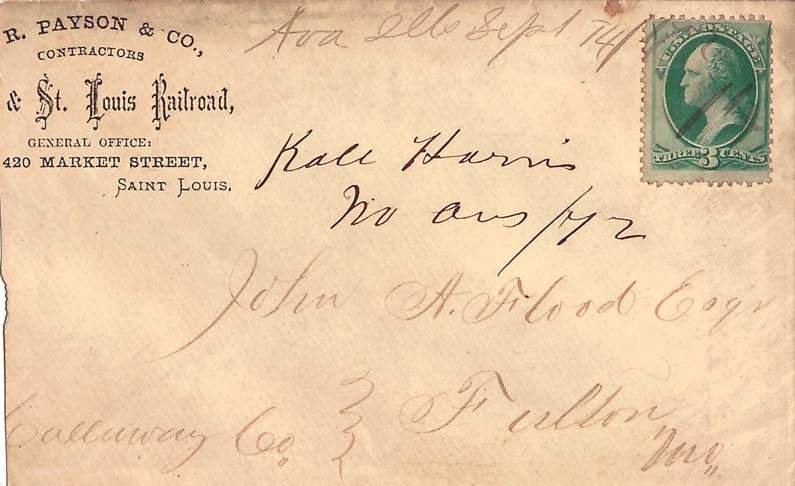 R. PAYSON & CO.,
CONTRACTORS
& St. Louis Railroad,
GENERAL OFFICE:
420 MARKET STREET,
SAINT LOUIS.
Ava Ills Sept 14/
U.S. POSTAGE
THREE 3 CENTS
Kall Harris
No ans /72
John A. Flood Esqr
Fulton
Callaway Co. Mo.